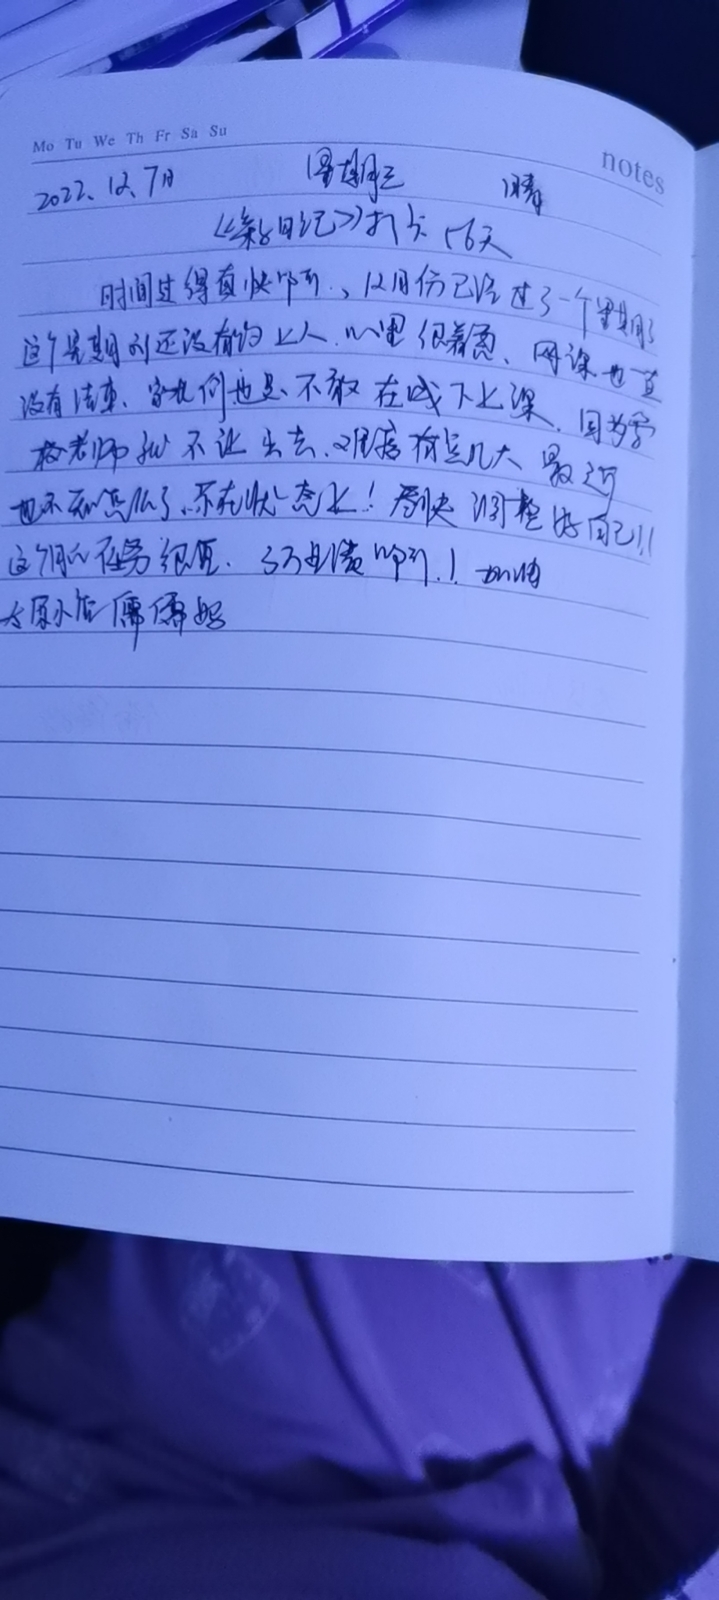 Mo Tu We Th Fr Sa Su
notes
2022.12.7日 星期三 晴
《亲日记》打卡156天
时间过得真快啊、12月份已经过了一个星期了
这个星期还没有约上人、心里很着急、网课也一直
没有结束、家长们也是不敢在线下上课、因为学
校老师就不让出去、难度有点儿大 最近
也不知怎么了、不在状态上！尽快调整好自己！！
这个月的任务很重、3万业绩啊！！加油
太原小店儒儒妈